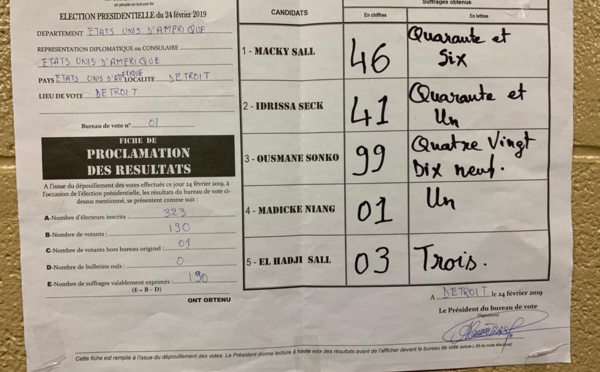 un peuple-un but-une foi
ELECTION PRESIDENTIELLE du 24 février 2019
DEPARTEMENT ETATS UNIS D'AMERIQUE
REPRESENTATION DIPLOMATIQUE ou CONSULAIRE
ETATS UNIS D'AMERIQUE
PAYS ETATS UNIS D'AMERIQUE LOCALITE DETROIT
LIEU DE VOTE DETROIT
Bureau de vote n° 01
FICHE DE
PROCLAMATION
DES RESULTATS
A l'issue du dépouillement des votes effectués ce jour 24 février 2019, à
l'occasion de l'élection présidentielle, les résultats du bureau de vote ci-
dessus mentionné, se présentent comme suit :
A-Nombre d'électeurs inscrits : 323
B-Nombre de votants : 190
C-Nombre de votants hors bureau originel : 01
D-Nombre de bulletins nuls : 0
E-Nombre de suffrages valablement exprimés : 190
(E = B – D)
ONT OBTENU
CANDIDATS
Suffrages obtenus
En chiffres
En lettres
1 - MACKY SALL 46 Quarante et
Six
2 - IDRISSA SECK 41 Quarante et
Un
3 - OUSMANE SONKO 99 Quatre Vingt
Dix neuf.
4 - MADICKE NIANG 01 Un
5 - EL HADJI SALL 03 Trois.
A DETROIT le 24 février 2019
Le Président du bureau de vote
(Signature)
Cette fiche est remplie à l'issue du dépouillement des votes. Le Président donne lecture à haute voix des résultats avant de l'afficher devant le bureau de vote